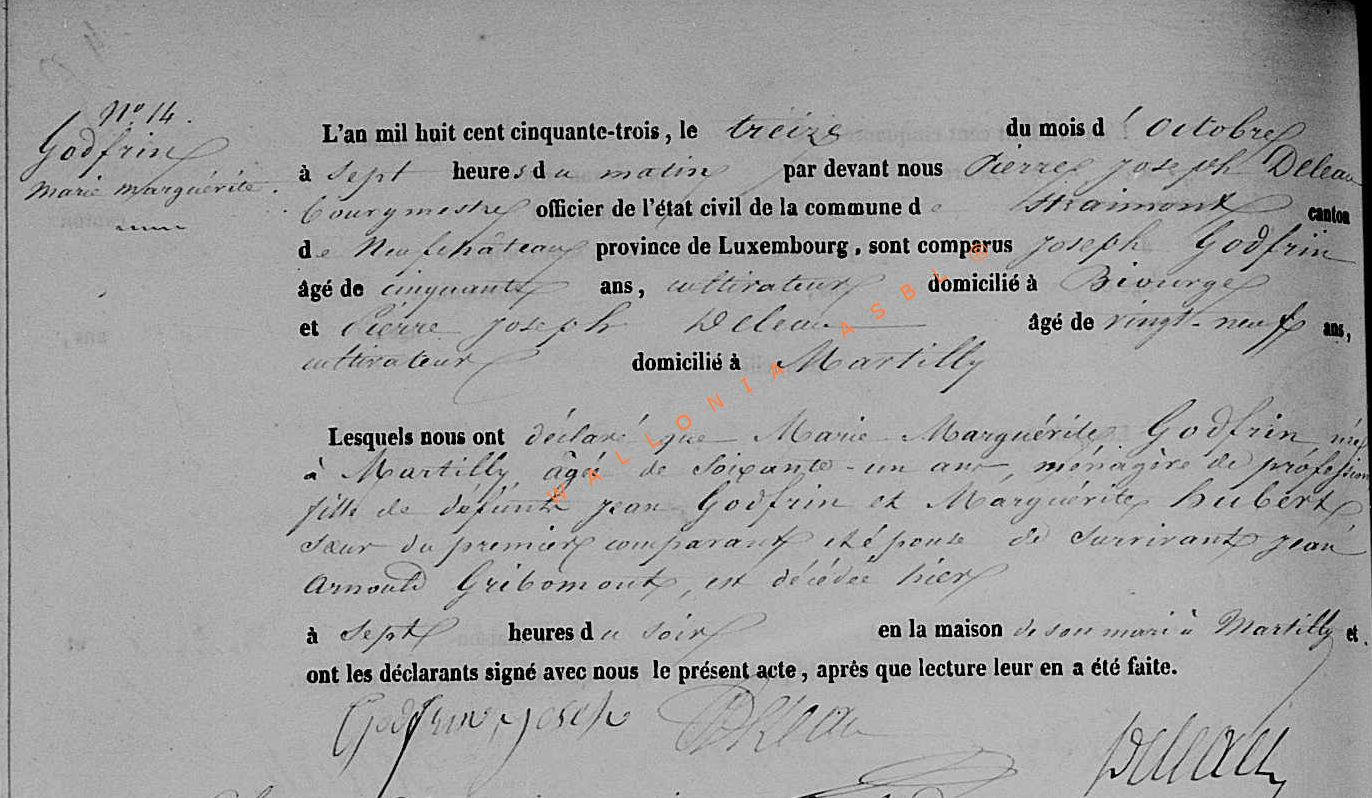 N° 14.
Godfrin
Marie Marguérite.
L'an mil huit cent cinquante-trois, le treize du mois d'Octobre
à Sept heures du matin par devant nous Pierre Joseph Deleau
bourgmestre officier de l'état civil de la commune de Straimont canton
de Neufchâteau province de Luxembourg, sont comparus Joseph Godfrin
âgé de cinquante ans, cultivateur domicilié à Biourge
et Pierre Joseph Deleau âgé de vingt-neuf ans,
cultivateur domicilié à Martilly
Lesquels nous ont déclaré que Marie Marguérite Godfrin née
à Martilly âgée de soixante-un ans, ménagère de profession
fille de défunts Jean Godfrin et Marguérite hubert,
Sœur du premier comparant et épouse de Survivant Jean
Arnould Gribomont, est décédée hier
à Sept heures du Soir en la maison de son mari à Martilly et
ont les déclarants signé avec nous le présent acte, après que lecture leur en a été faite.
Godfrin Joseph Deleau Deleau
WALLONIA ASBL ®